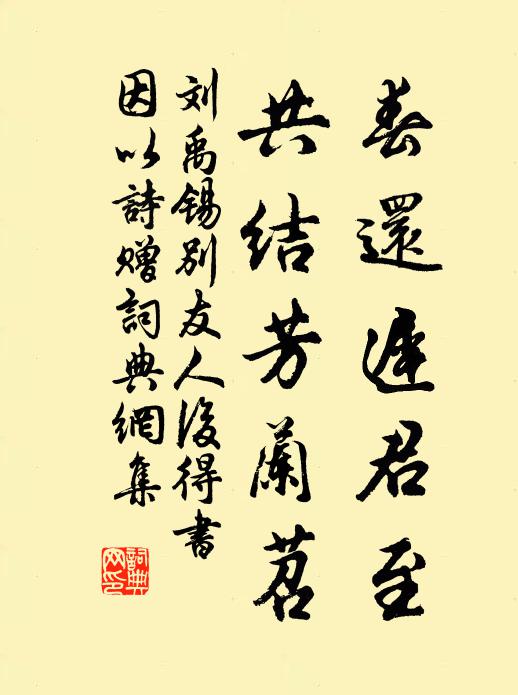 春還遲君至
共結芳蘭苕
刘禹锡别友人後得書
因以詩赠詞典網集
詞典
网印